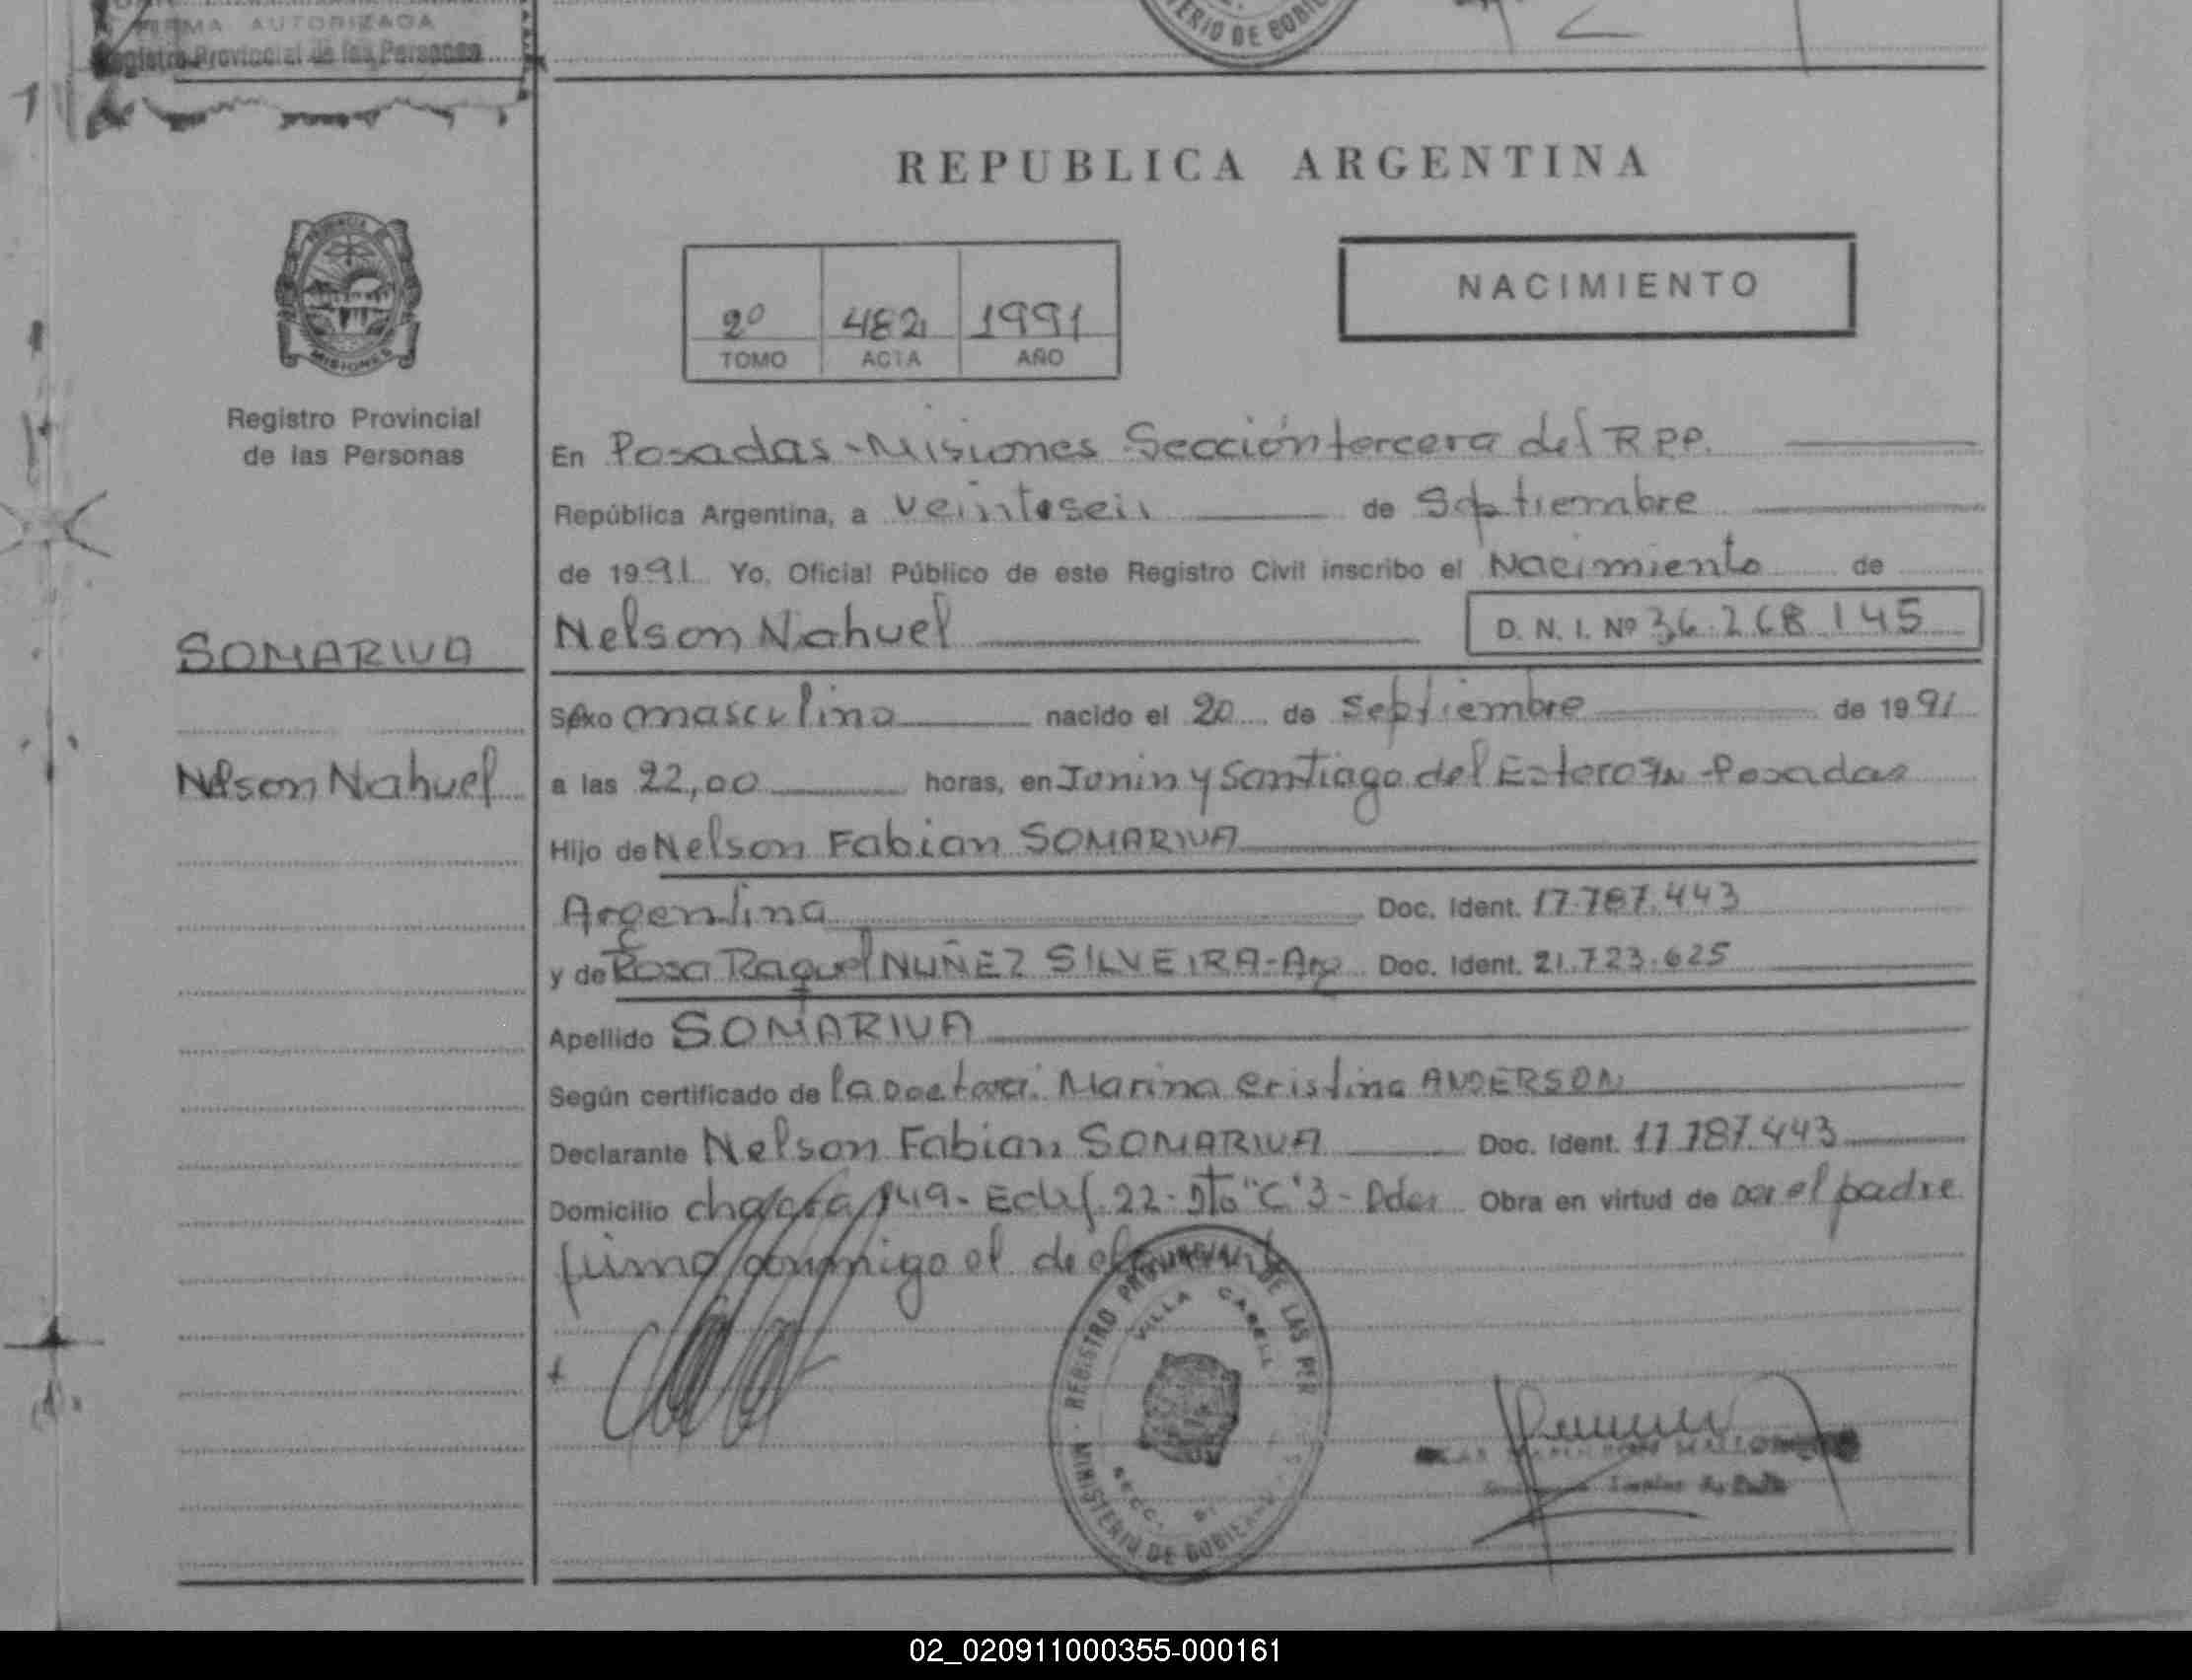 FIRMA AUTORIZADA
Registro Provincial de las Personas
MINISTERIO DE GOBIE
REPUBLICA ARGENTINA
PROVINCIA DE
MISIONES
2º 482 1991
TOMO ACTA AÑO
NACIMIENTO
Registro Provincial
de las Personas
En Posadas - Misiones Sección tercera del R.P.P.
República Argentina, a veintiseis de Septiembre
de 1991 Yo, Oficial Público de este Registro Civil inscribo el Nacimiento de
Nelson Nahuel D. N. I. Nº 36.268.145
SOMARIVA
Sexo masculino nacido el 20 de Septiembre de 1991
Nelson Nahuel
a las 22,00 horas, en Junin y Santiago del Estero Posadas
Hijo de Nelson Fabian SOMARIVA
Argentina Doc. Ident. 17.787.443
y de Rosa Raquel NUÑEZ SILVEIRA - Arg Doc. Ident. 21.723.625
Apellido SOMARIVA
Según certificado de la Doctora: Marina Cristina ANDERSON
Declarante Nelson Fabian SOMARIVA Doc. Ident. 17.787.443
Domicilio chacra 149 - Edif. 22 - Dto "C" 3 - Pdas Obra en virtud de ser el padre
firma conmigo el declarante
REGISTRO PROVINCIAL DE LAS PER
VILLA CABELL
SECC.
MINISTERIO DE GOBIERNO
02_020911000355-000161